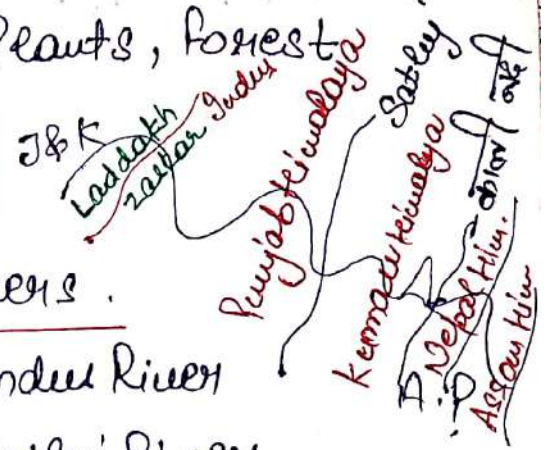 Plants, Forest
J&K
Laddakh
Zaskar
Indus
Punjab Himalaya
Satluj
Kumau Himalya
काली नदी
Nepal Him.
A.P.
Assam Him
ers.
ndus River
River